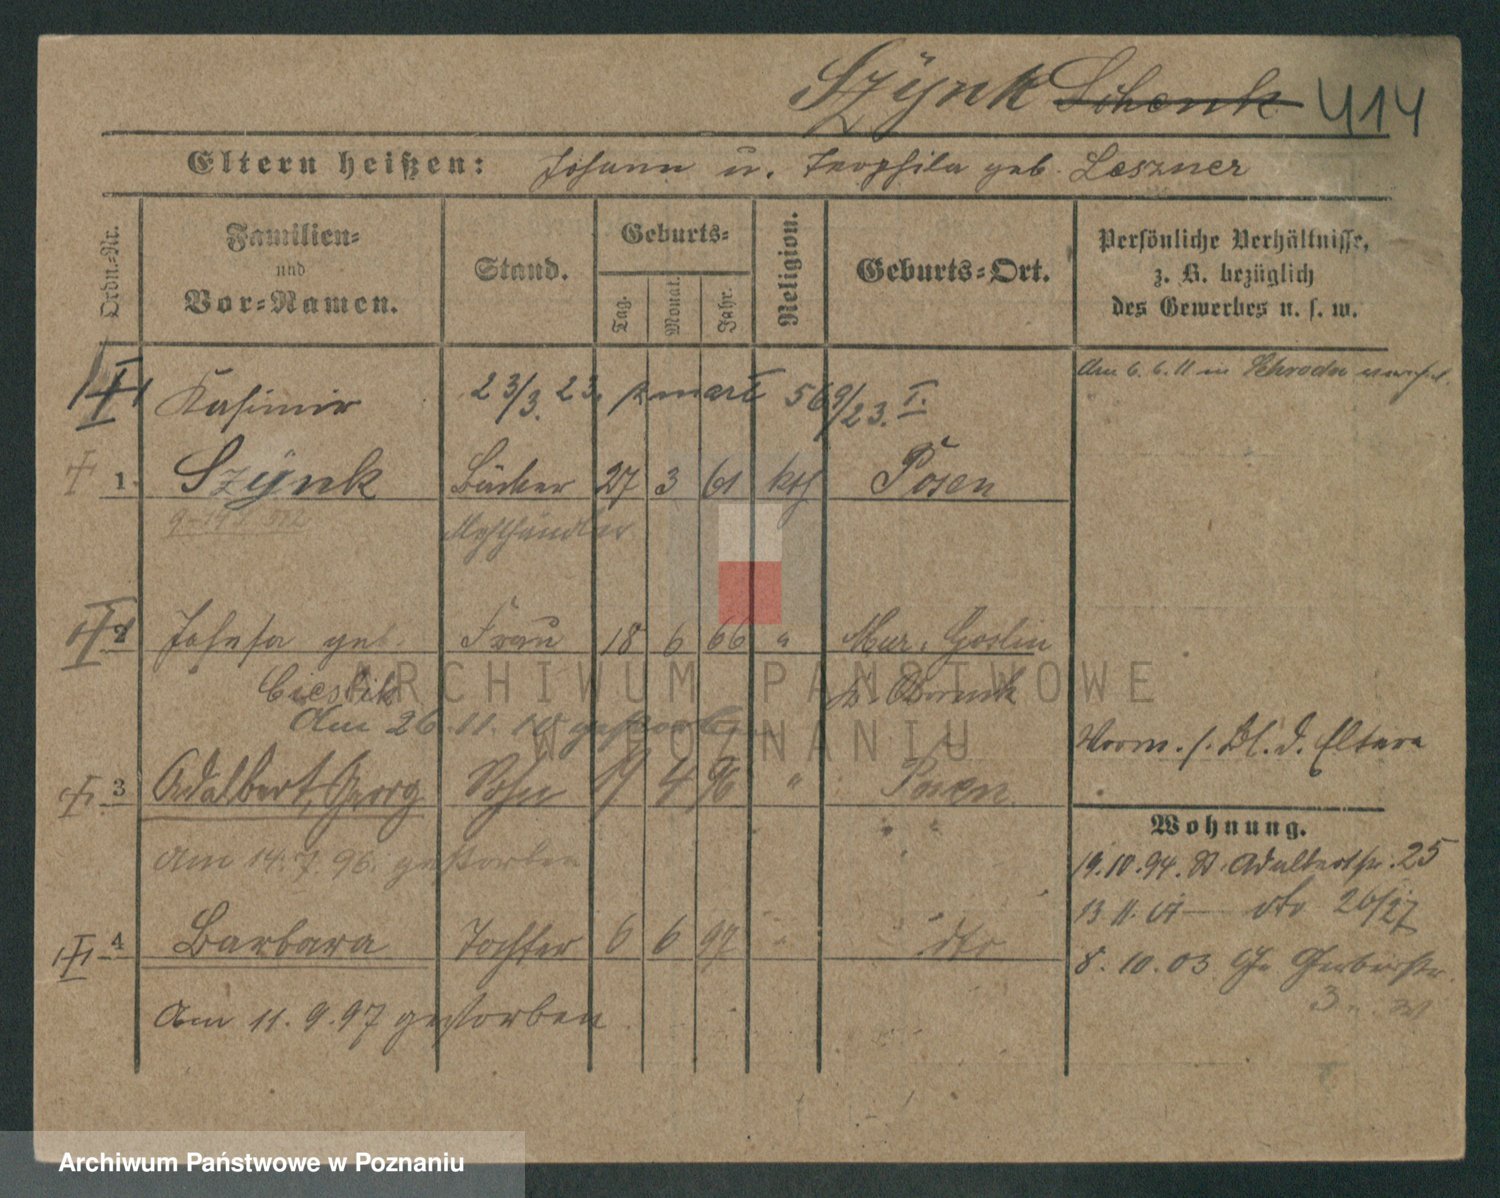 Szÿnk Schenk 414
Eltern heißen: Johann u. Teophila geb. Leszner
Ordn.-Nr.
Familien-
und
Vor-Namen.
Stand.
Geburts-
Tag.
Monat.
Jahr.
Religion.
Geburts-Ort.
Persönliche Verhältnisse,
z. B. bezüglich
des Gewerbes u. s. w.
Am 6.6.11 in Schroda
Kasimir 23/3. 23. 569/23. I.
1 Szÿnk Bäcker 27 3 61 kth Posen
Mehlhändler
2 Josefa geb. Frau 18 6 66 " Mur. Goslin
Cieslik Kr. Obornik
Am 26.11. gestorben
Vorm. s. Bl. d. Eltern
3 Adalbert, Georg Sohn 19 4 96 " Posen
Am 14.7.96. gestorben
Wohnung.
19.10.94. St. Adalbertstr. 25
13.11. dto 26/27
4 Barbara Tochter 6 6 97 " dto
8.10.03 Gr. Gerberstr.
Am 11.9.97 gestorben
ARCHIWUM PAŃSTWOWE
W POZNANIU
Archiwum Państwowe w Poznaniu